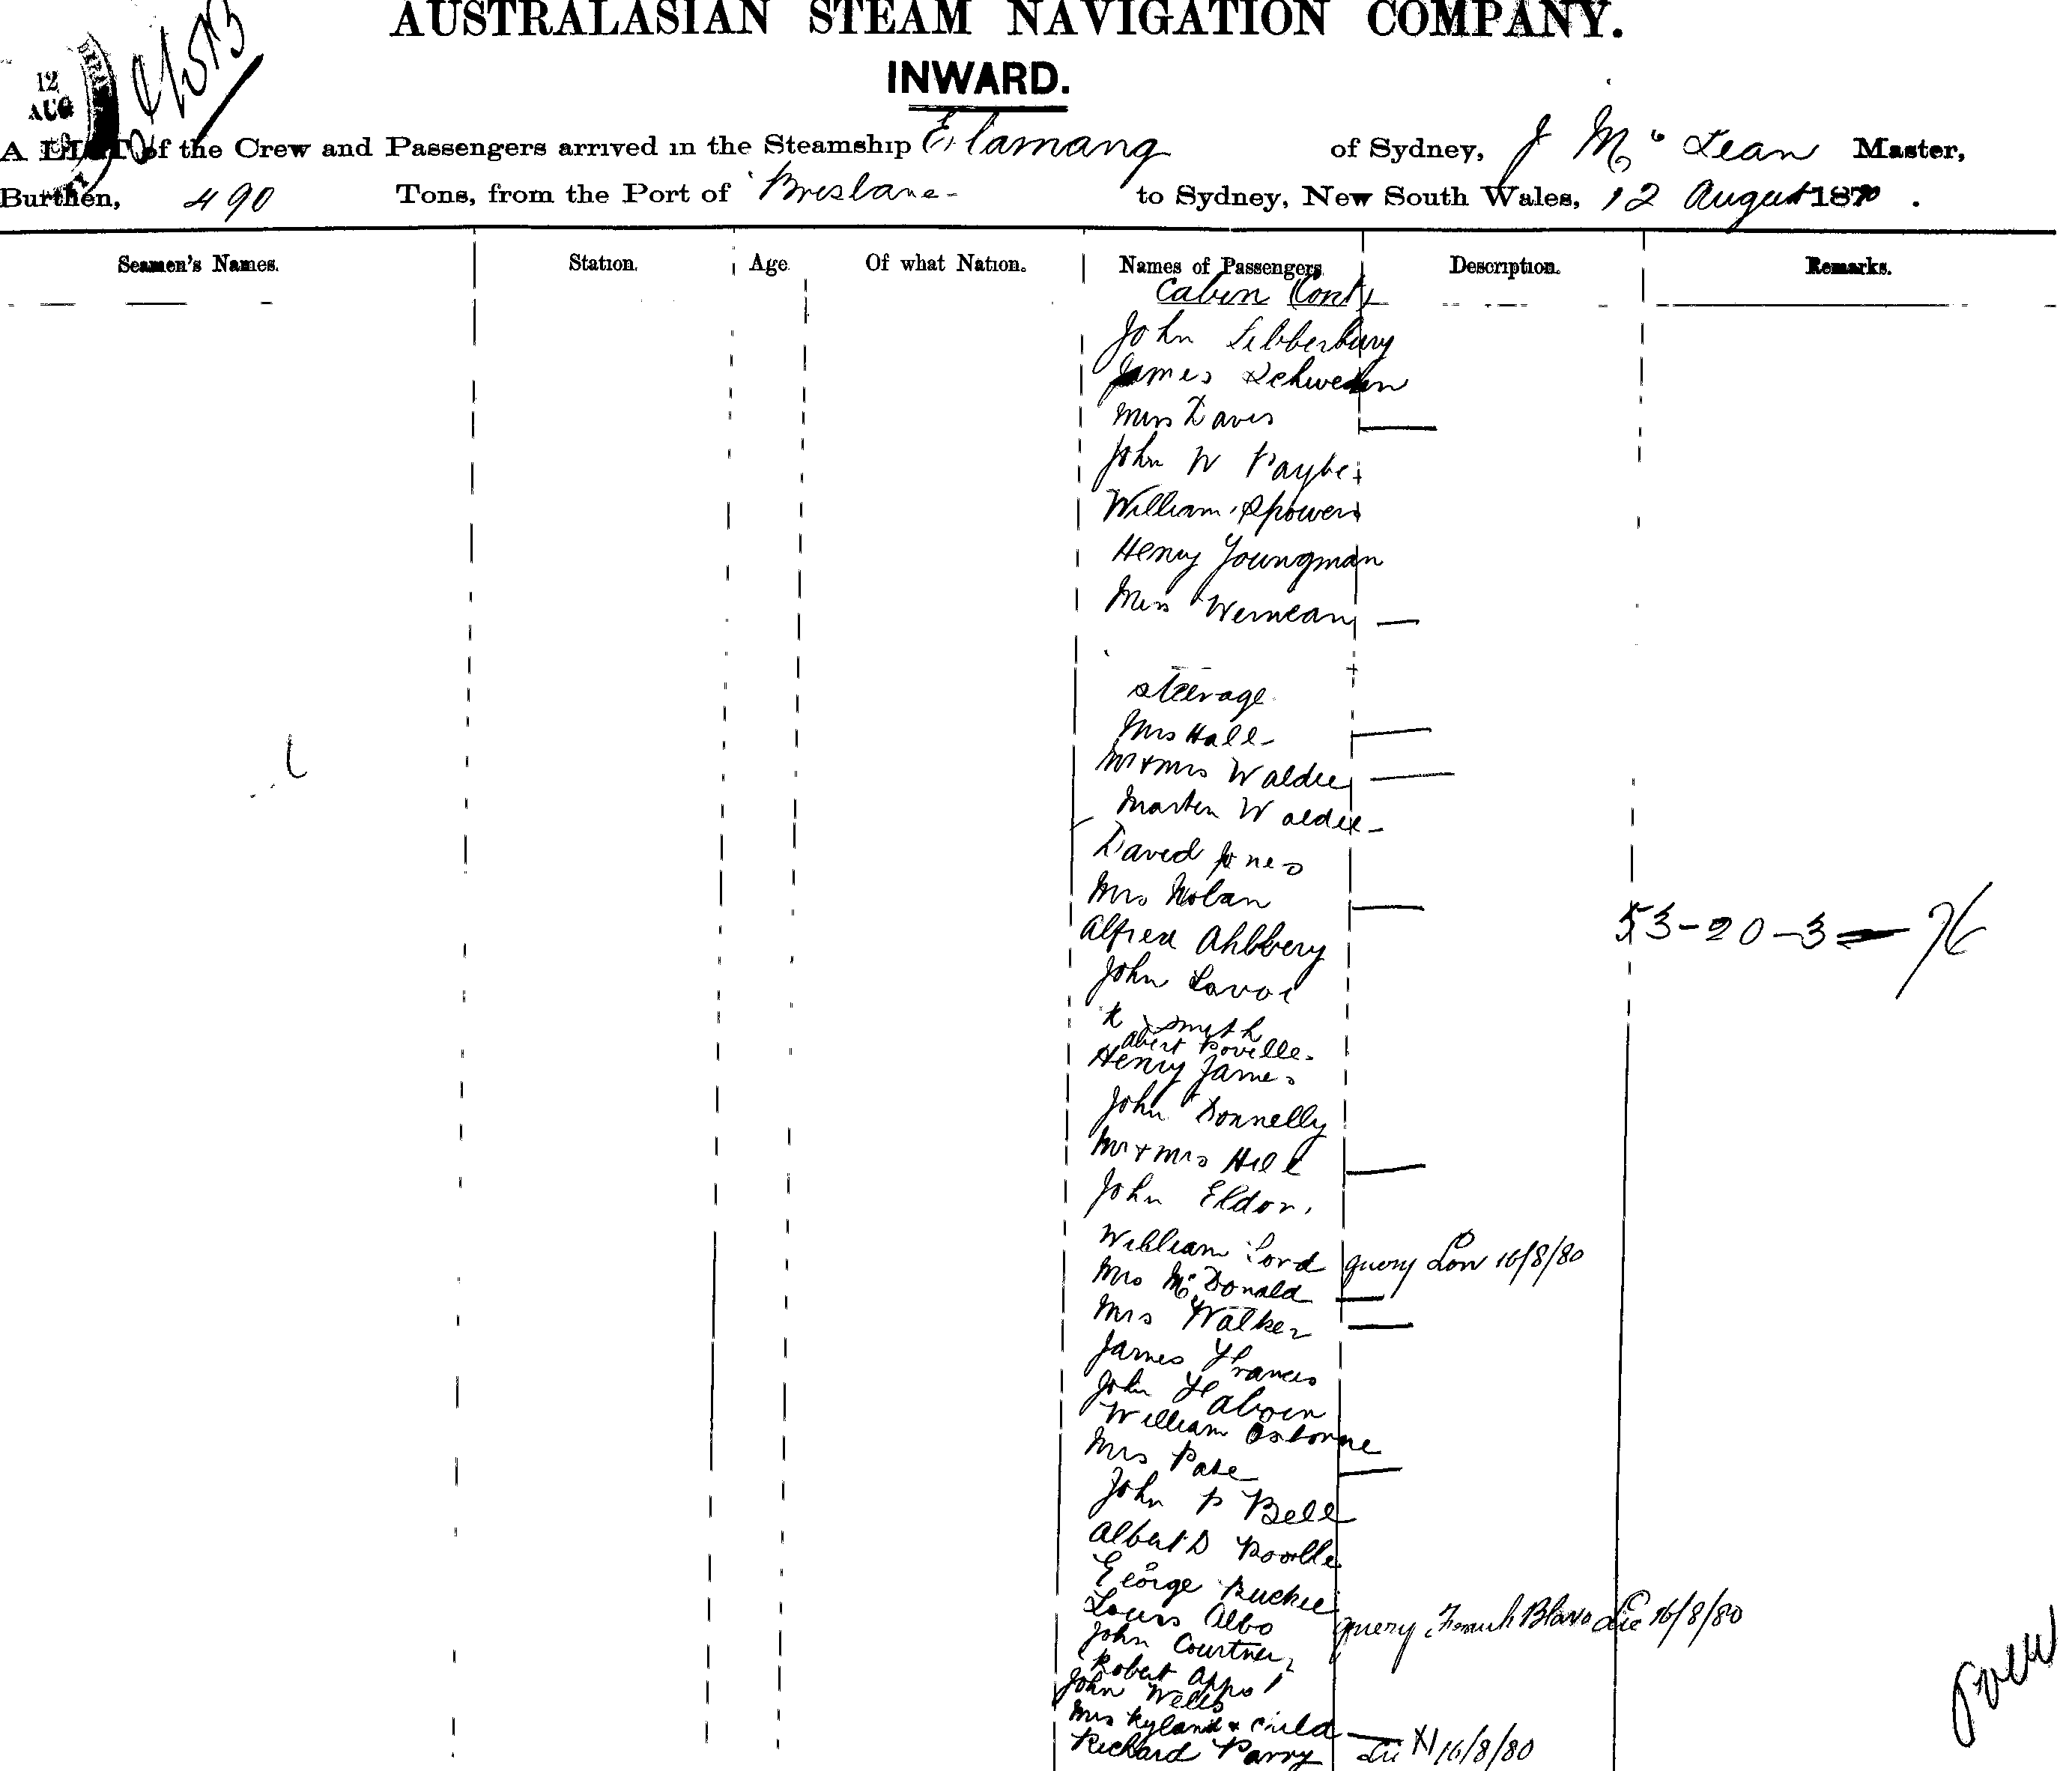 AUSTRALASIAN STEAM NAVIGATION COMPANY.
INWARD.
12
AUG
A LIST of the Crew and Passengers arrived in the Steamship Elamang of Sydney, J McLean Master,
Burthen, 490 Tons, from the Port of Brisbane - to Sydney, New South Wales, 12 August 1880.
Seamen's Names. Station. Age. Of what Nation. Names of Passengers. Description. Remarks.
Cabin Cont
John Sibberbury
James
Miss Davis
John W
William Spowers
Henry Youngman
Miss
Steerage
Mrs Hall
Mr + Mrs Waldie
Martin Waldie
David Jones
Mrs Nolan
Alfred Ahlbery
53-20-3 = 76
John
R Smith
Albert
Henry James
John Donnelly
Mr + Mrs Hill
John Eldon
William Lord query Low 16/8/80
Mrs McDonald
Mrs Walker
James Francis
John
William Osborne
Mrs Pate
John P Bell
Albert D
George Buckie
Louis Albo query 16/8/80
John Courtney
Robert
John Wells
Mrs Ryland + child
Richard Parry 16/8/80